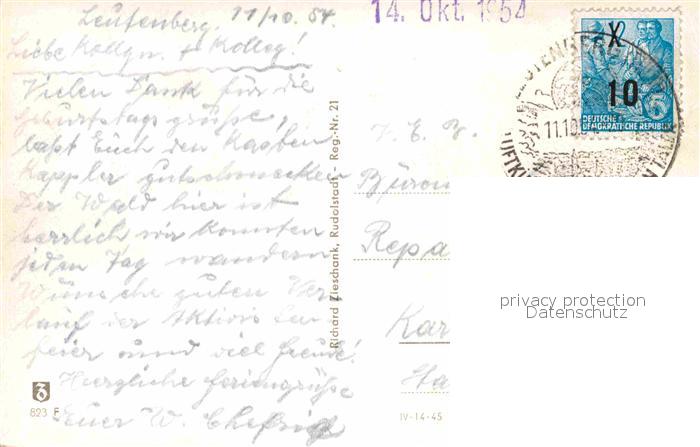 Leutenberg, 11/10. 54.
Liebe Kollgn. + Kolleg!
Vielen Dank für die
Geburtstagsgrüße,
laßt Euch den Kasten
Kappler gutschmecken
Der Wald hier ist
herrlich wir konnten
jeden Tag wandern
Wünsche guten Ver
lauf der Aktivisten
feier und viel Freude!
Herzliche Feriengrüße
Euer W.
823 F
Richard Zieschank, Rudolstadt - Reg.-Nr. 21
14. Okt. 1954
10
DEUTSCHE
DEMOKRATISCHE REPUBLIK
5
11.10
Z. E. B.
Bürom
Repa
Kar
Sta
IV-14-45
privacy protection
Datenschutz